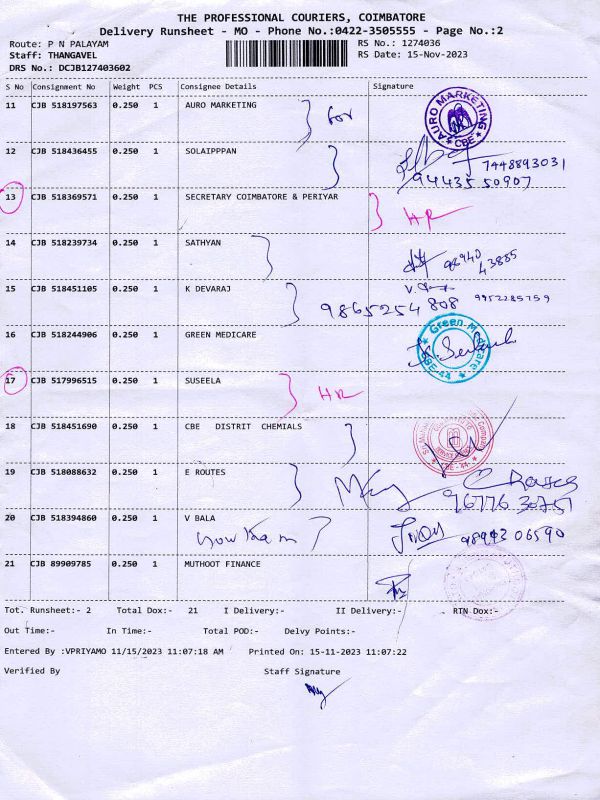 THE PROFESSIONAL COURIERS, COIMBATORE
Delivery Runsheet - MO - Phone No.:0422-3505555 - Page No.:2
Route: P N PALAYAM RS No.: 1274036
Staff: THANGAVEL RS Date: 15-Nov-2023
DRS No.: DCJB127403602
S No Consignment No Weight PCS Consignee Details Signature
11 CJB 518197563 0.250 1 AURO MARKETING for AURO MARKETING CBE
12 CJB 518436455 0.250 1 SOLAIPPPAN 7448893031
94435 50907
13 CJB 518369571 0.250 1 SECRETARY COIMBATORE & PERIYAR HR
14 CJB 518239734 0.250 1 SATHYAN 98940
43885
15 CJB 518451105 0.250 1 K DEVARAJ 9952285759
9865254 808
16 CJB 518244906 0.250 1 GREEN MEDICARE Green Medicare CBE-44
17 CJB 517996515 0.250 1 SUSEELA HR
18 CJB 518451690 0.250 1 CBE DISTRIT CHEMIALS CBE - 44
19 CJB 518088632 0.250 1 E ROUTES
96776 30751
20 CJB 518394860 0.250 1 V BALA 98943 06590
21 CJB 89909785 0.250 1 MUTHOOT FINANCE
Tot. Runsheet:- 2 Total Dox:- 21 I Delivery:- II Delivery:- RTN Dox:-
Out Time:- In Time:- Total POD:- Delvy Points:-
Entered By :VPRIYAMO 11/15/2023 11:07:18 AM Printed On: 15-11-2023 11:07:22
Verified By Staff Signature